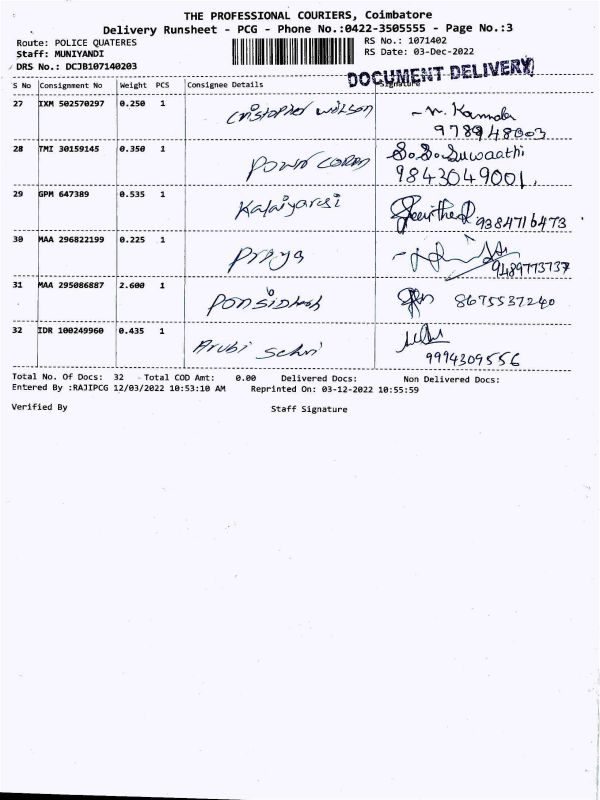 THE PROFESSIONAL COURIERS, Coimbatore
Delivery Runsheet - PCG - Phone No.:0422-3505555 - Page No.:3
Route: POLICE QUATERES RS No.: 1071402
Staff: MUNIYANDI RS Date: 03-Dec-2022
DRS No.: DCJB107140203
DOCUMENT DELIVERY
S No Consignment No Weight PCS Consignee Details Signature
27 IXM 502570297 0.250 1 cristopher wilson - n. Kamala
9789948003
28 TMI 30159145 0.350 1 So.So.Suwaathi
9843049001.
29 GPM 647389 0.535 1 Kalaiyarasi 9384716473
30 MAA 296822199 0.225 1 Priya
9489773737
31 MAA 295086887 2.600 1 8675537240
32 IDR 100249960 0.435 1 Arubi Selvi
9994309556
Total No. Of Docs: 32 - Total COD Amt: 0.00 Delivered Docs: Non Delivered Docs:
Entered By :RAJIPCG 12/03/2022 10:53:10 AM Reprinted On: 03-12-2022 10:55:59
Verified By Staff Signature